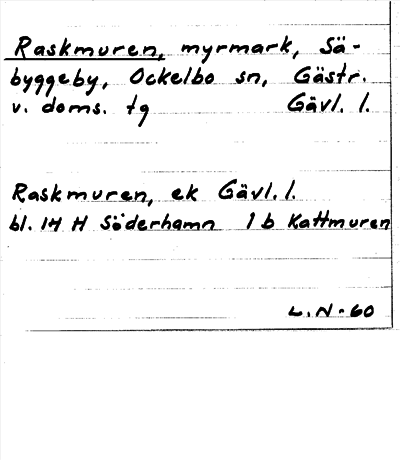 Raskmuren, myrmark, Sä-
byggeby, Ockelbo sn, Gästr.
v. doms. tg Gävl. l.
Raskmuren, ek Gävl. l.
bl. 14 H Söderhamn 1 b Kattmuren
L. N - 60